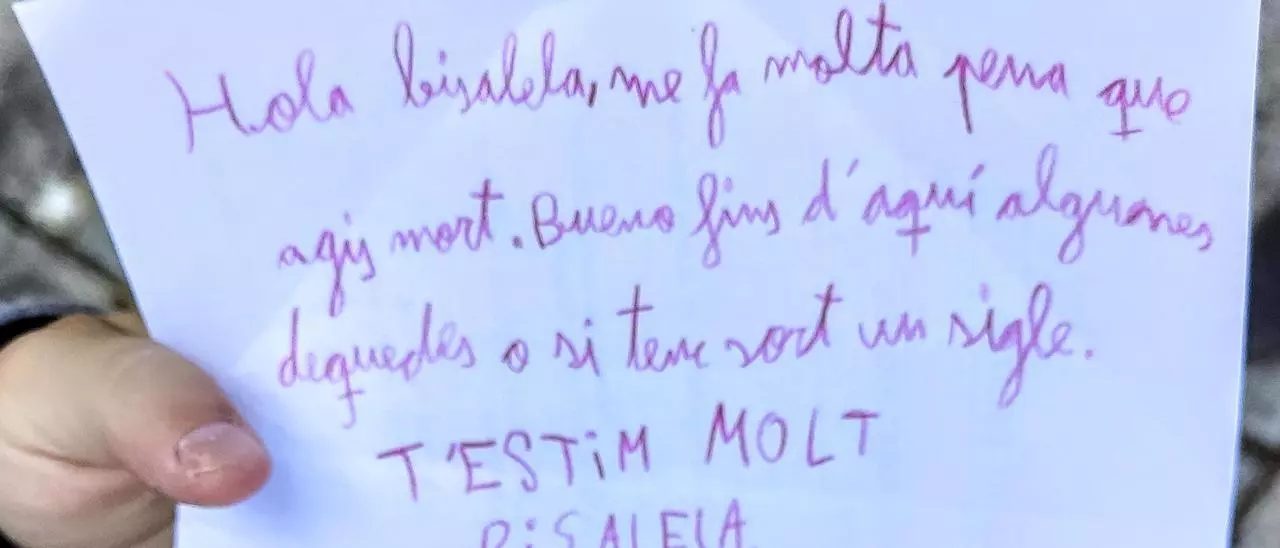 Hola bisalela, me fa molta pena que
agis mort. Bueno fins d'aquí algunes
dequedes o si tenc sort un sigle.
T'ESTiM MOLT
BiSALELA